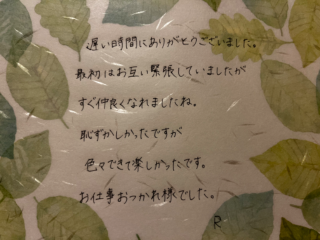 遅い時間にありがとうございました。
最初はお互い緊張していましたが
すぐ仲良くなれましたね。
恥ずかしかったですが
色々できて楽しかったです。
お仕事おつかれ様でした。
R